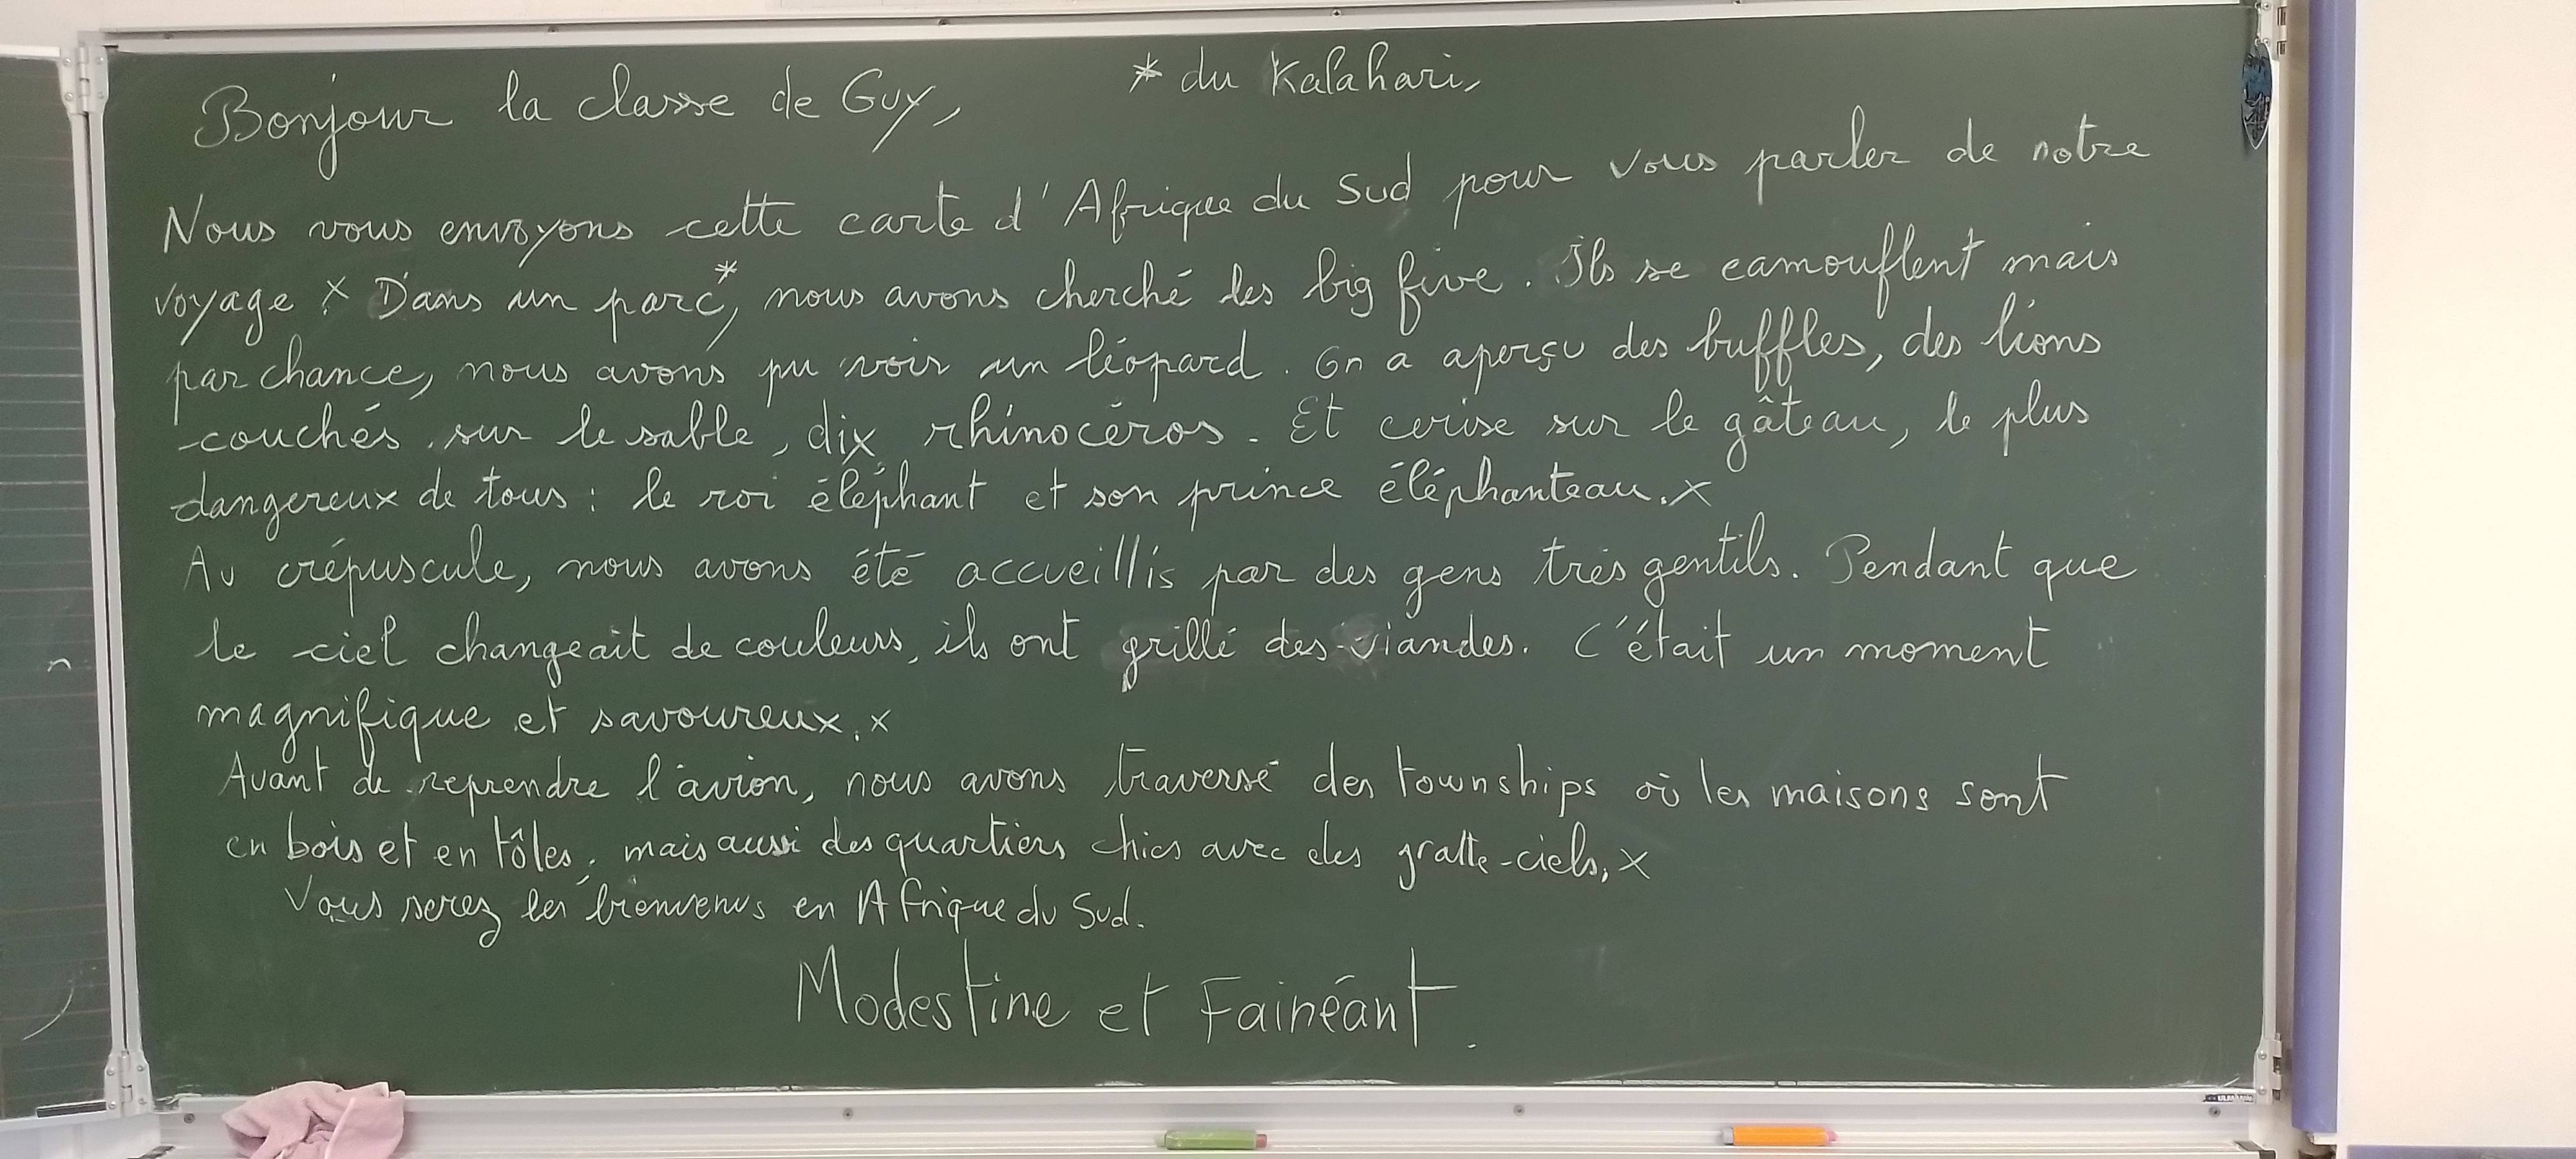 Bonjour la classe de Guy,
* du Kalahari,
Nous vous envoyons cette carte d'Afrique du Sud pour vous parler de notre
voyage. x Dans un parc*, nous avons cherché les big five. Ils se camouflent mais
par chance, nous avons pu voir un léopard. On a aperçu des buffles, des lions
couchés sur le sable, dix rhinocéros. Et cerise sur le gâteau, le plus
dangereux de tous : le roi éléphant et son prince éléphanteau. x
Au crépuscule, nous avons été accueillis par des gens très gentils. Pendant que
le ciel changeait de couleurs, ils ont grillé des viandes. C'était un moment
magnifique et savoureux. x
Avant de reprendre l'avion, nous avons traversé des townships où les maisons sont
en bois et en tôles, mais aussi des quartiers chics avec des gratte-ciels. x
Vous serez les bienvenus en Afrique du Sud.
Modestine et Fainéant.